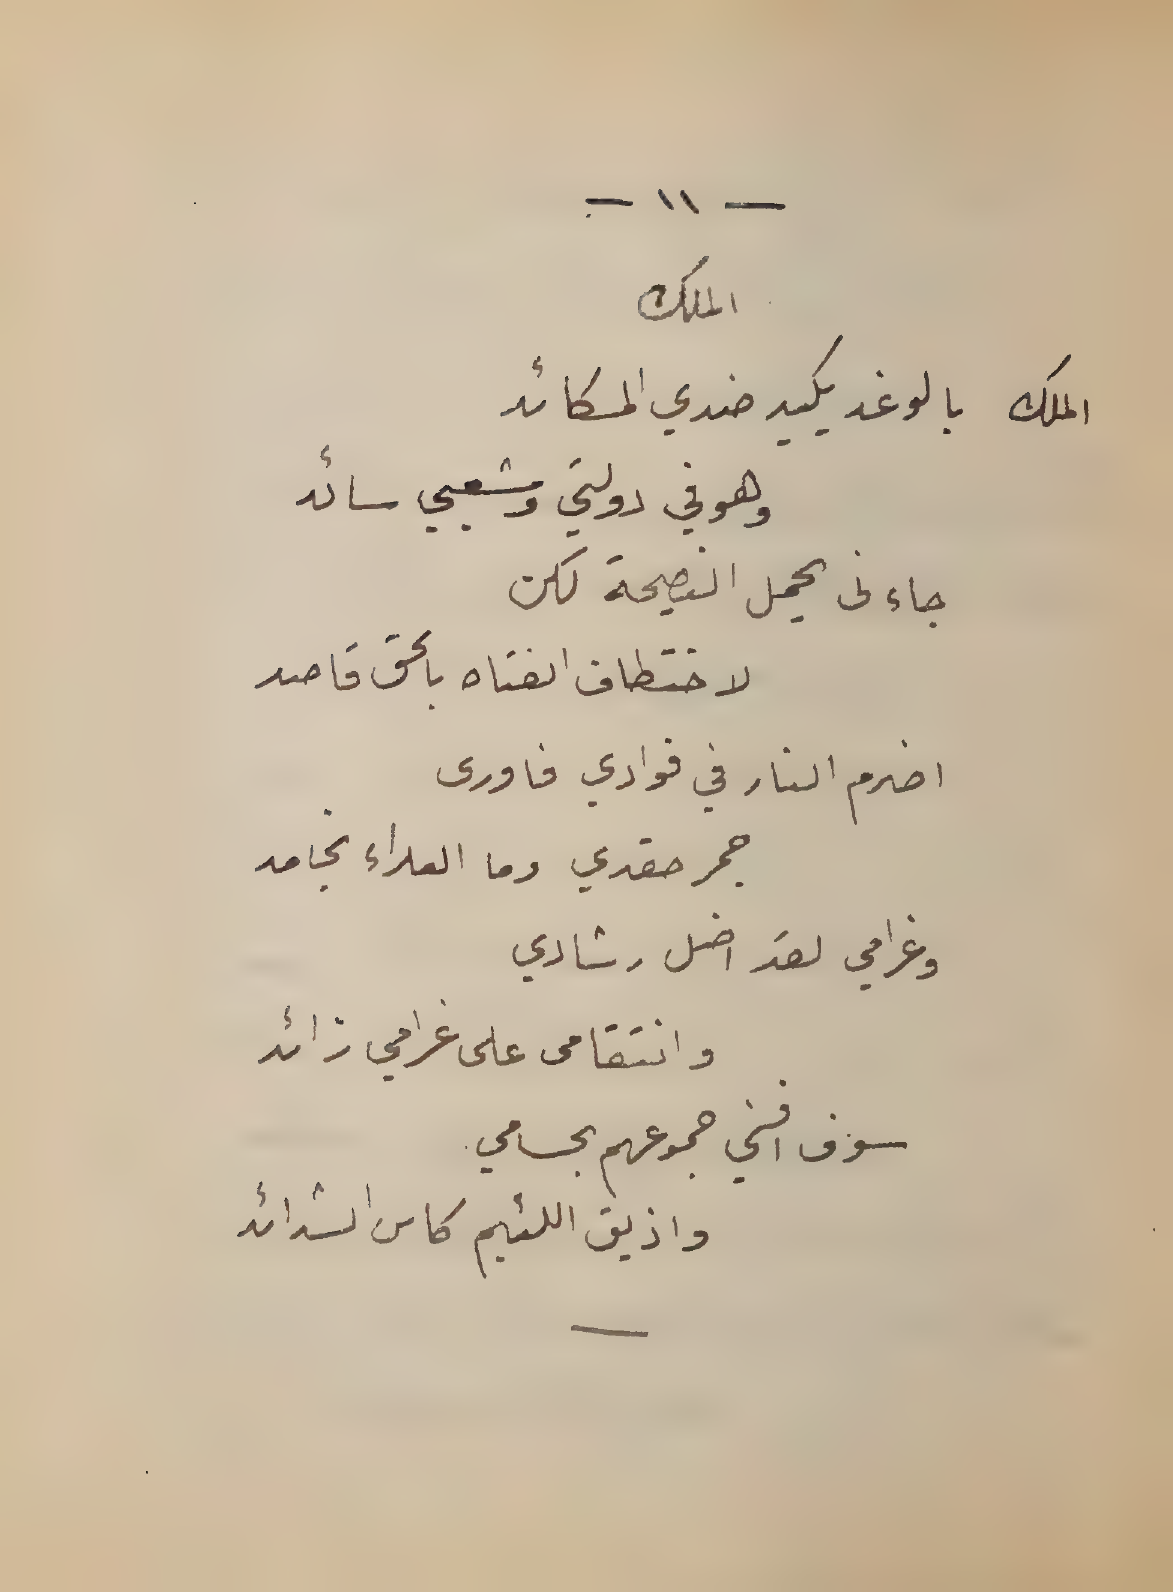 — ١١ —
الملك
الملك بالوغد يكيد ضدي المكائد
وهو في دولتي وشعبي سائد
جاءنى يحمل النصيحة لكن
لاختطاف الفتاه بالحق قاصد
اضرم النار في فوادي فاورى
جمر حقدي وما العداء بخامد
وغرامي لقد اضل رشادي
وانتقامى على غرامي زائد
سوف افني جموعهم بحسامي
واذيق اللئيم كاس الشدائد